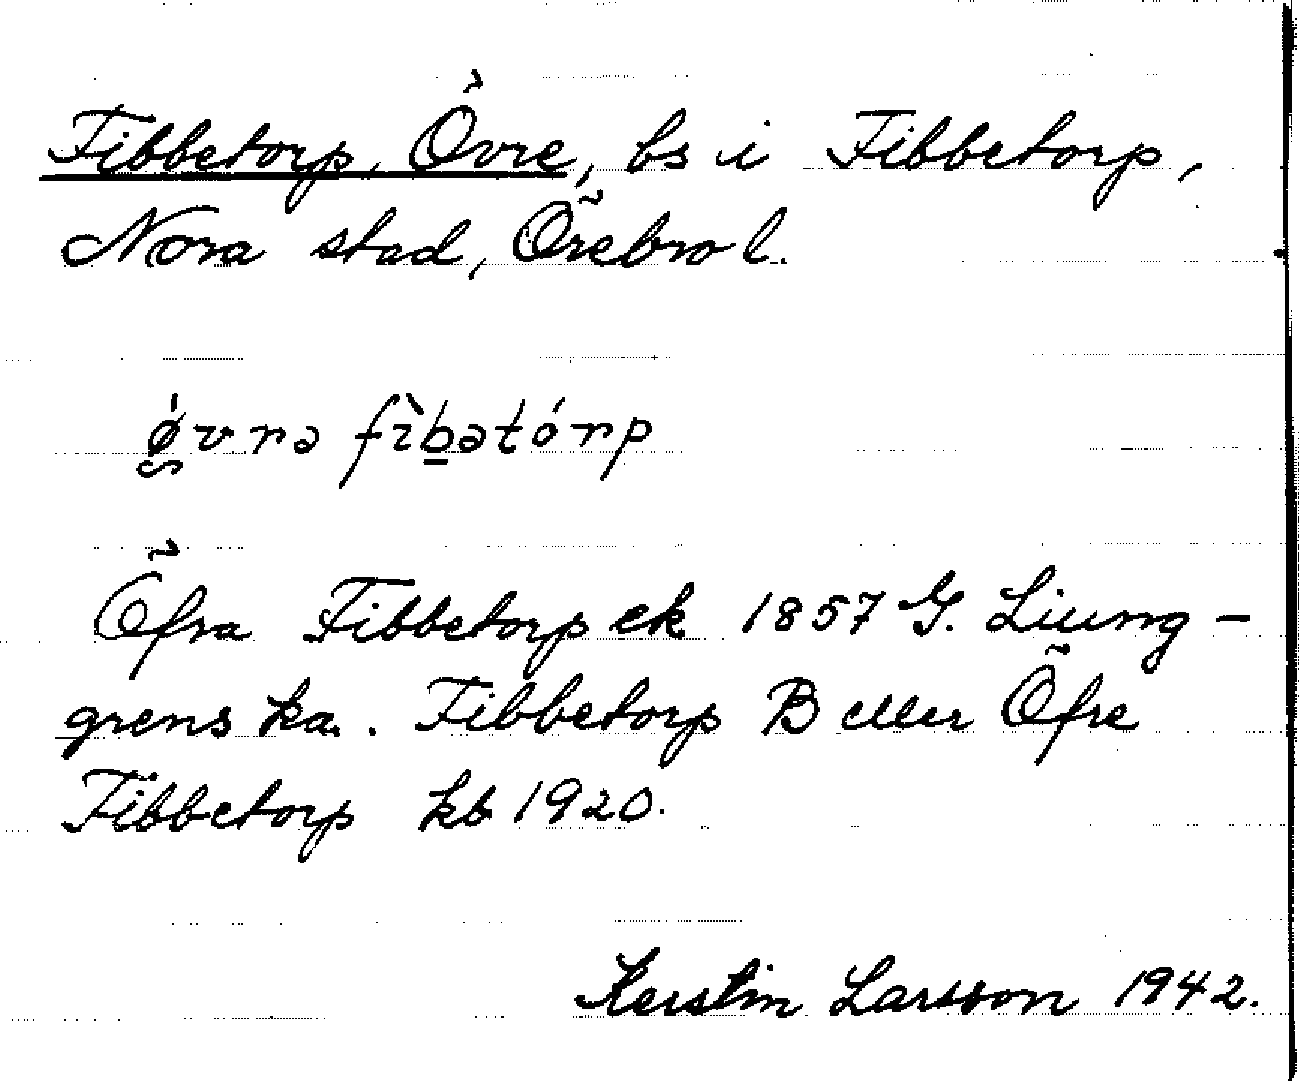 Fibbetorp, Övre, bs i Fibbetorp,
Nora stad, Örebro l.
ǿvrə fìbətórp
Öfra Fibbetorp ek 1857 G. Liung-
grens ka. Fibbetorp B eller Öfre
Fibbetorp kb 1920.
Kerstin Larsson 1942.